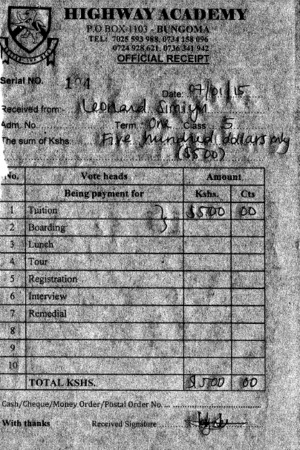 HIGHWAY ACADEMY
P.O BOX-1103 - BUNGOMA
TEL: 0725 593 988, 0734 158 096
0724 928 621, 0736 341 942
OFFICIAL RECEIPT
Serial NO. 194
Date 07/01/15
Received from:- Leonard Simiyu
Adm. No. Term One Class 5
The sum of Kshs. Five hundred dollars only
($500)
No. Vote heads Amount
Being payment for Kshs. Cts
1 Tuition $500 00
2 Boarding
3 Lunch
4 Tour
5 Registration
6 Interview
7 Remedial
8
9
10
TOTAL KSHS. $500 00
Cash/Cheque/Money Order/Postal Order No. ...
With thanks Received Signature